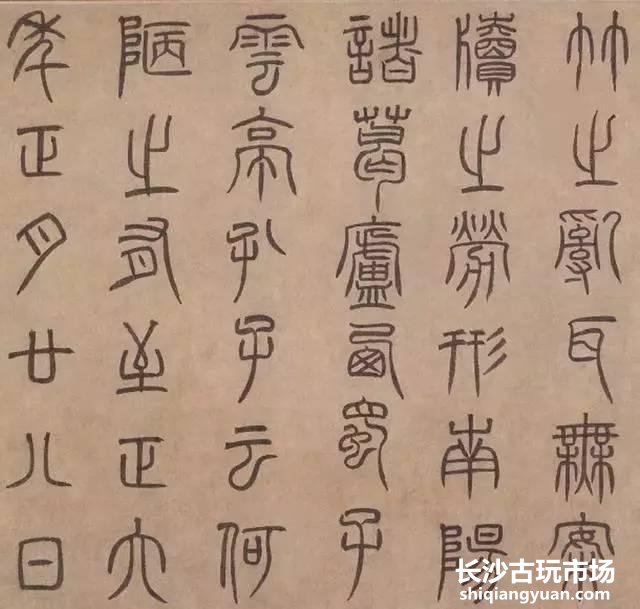 竹之亂耳無案
牘之勞形南陽
諸葛廬西蜀子
雲亭孔子云何
陋之有至正六
年正月廿八日
长沙古玩市场
shiqiangyuan.com